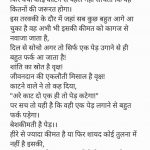 कितनों की जरूरत होगा।
इस तरक्की के दौर में जहां सब कुछ बहुत आगे आ
चुका है वह अभी भी इसकी कीमत को कागज से
नवाजा जाता है,
दिल से सोचो अगर तो सिर्फ एक पेड़ उगाने से ही
बहुत फर्क आ जाता है!
शांति का स्रोत है वृक्ष!
जीवनदान की एकलौती मिसाल है वृक्ष!
काटने वाले ने तो कह दिया,
"अरे काट दो एक ही तो पेड़ कटेगा!"
पर सच तो यही है कि वही एक पेड़ लगाने से बहुत
फर्क पड़ेगा।
बेशकीमती है पेड़।।
हीरे से ज्यादा कीमत है या फिर शायद कोई तुलना में
नहीं है इसकी,